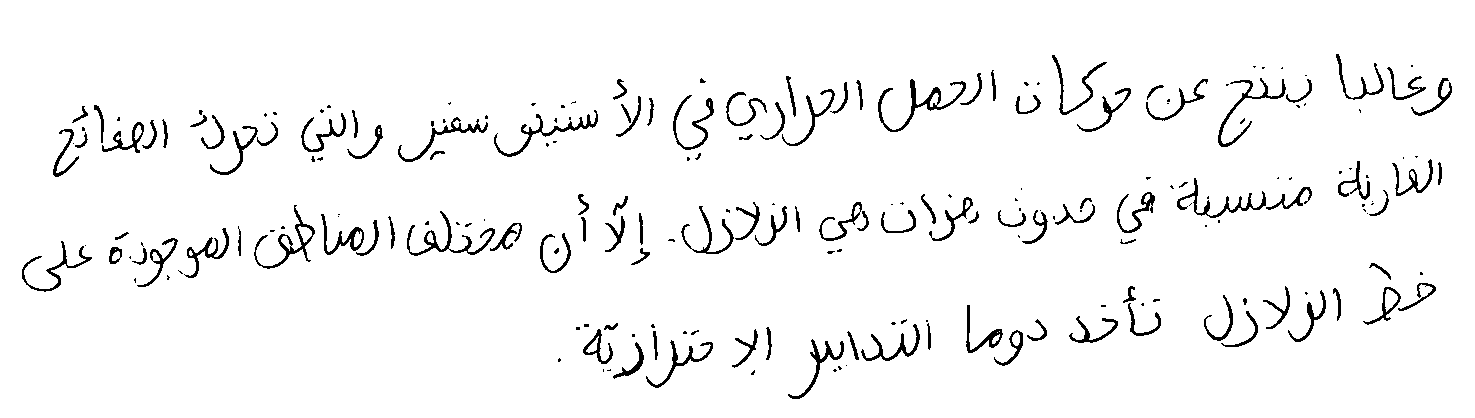 وغالبا ينتج عن حركات الحمل الحراري في الأستينوسفير والتي تحرك الصفائح
القارية متسببة في حدوث هزات هي الزلازل. إلّا أن مختلف المناطق الموجودة على
خط الزلازل تأخد دوما التدابير الإحترازية.